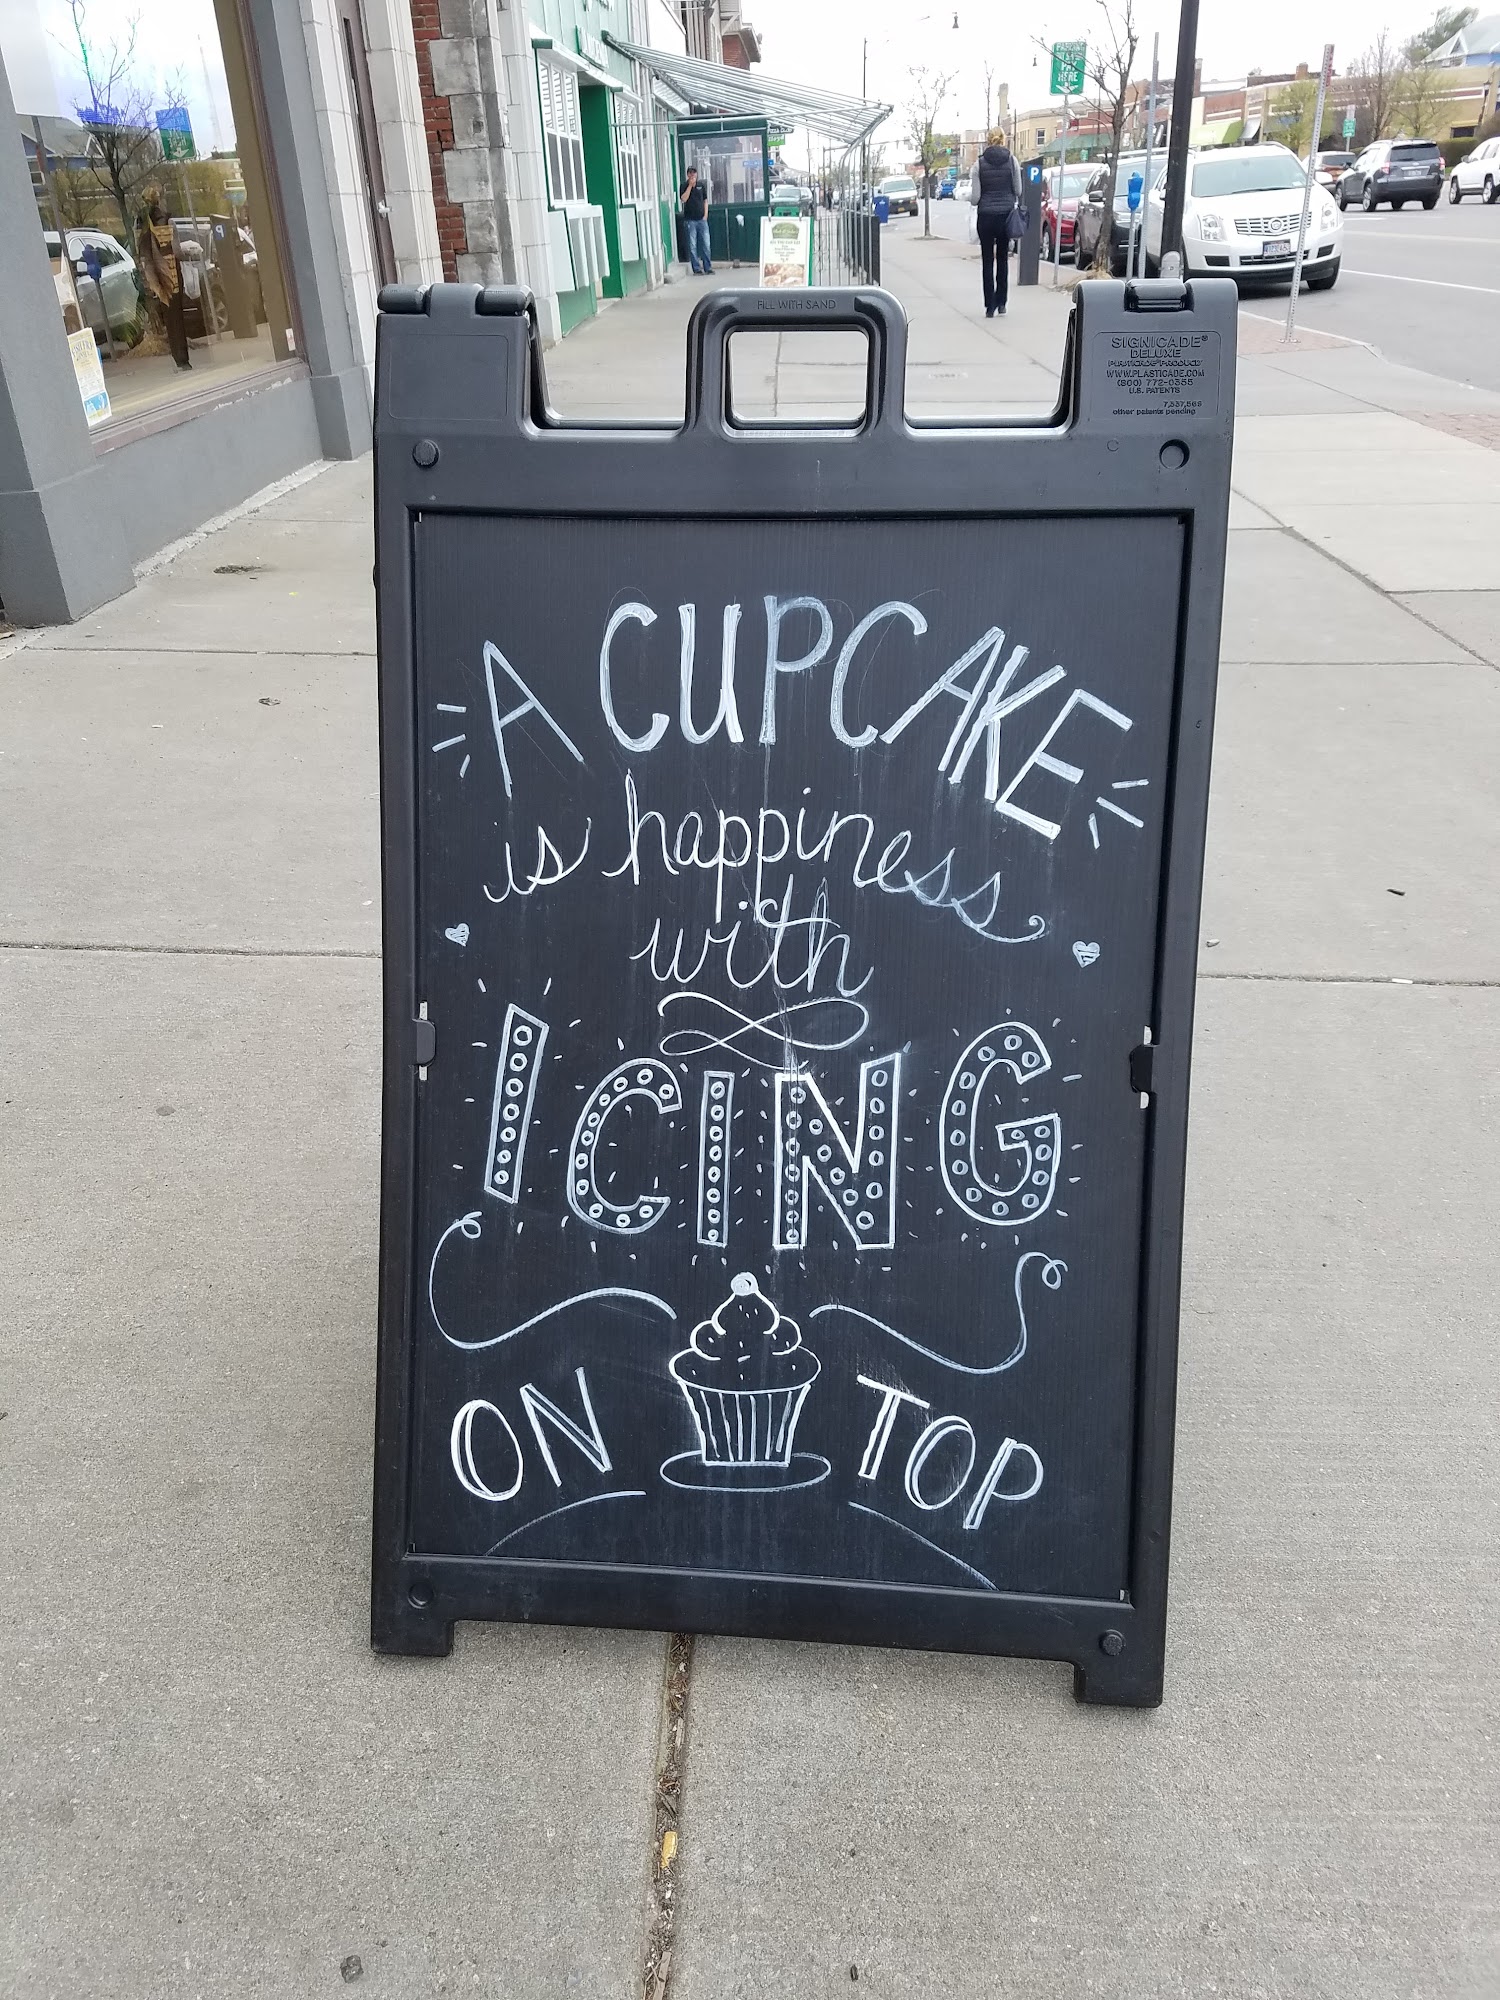 PARKING
PAY
HERE
P
FILL WITH SAND
SIGNICADE®
DELUXE
PLASTICADE® PRODUCT
WWW.PLASTICADE.COM
(800) 772-0355
U.S. PATENTS
7,337,568
other patents pending
A CUPCAKE
is happiness
with
ICING
ON TOP